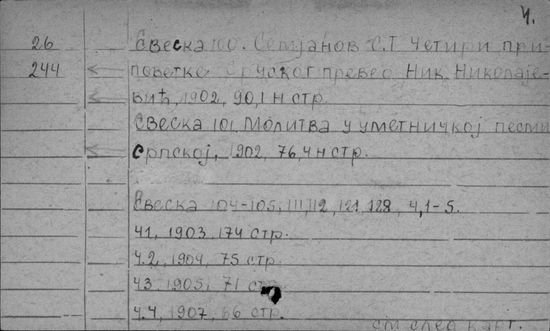 4.
26 Свеска 100. Семјанов С.Т. Четири при-
244 поветке. С руског превео Ник. Николаје-
вић, 1902, 90,1 н стр.
Свеска 101. Молитва у уметничкој песми
српској, 1902, 76,4 н стр.
Свеска 104-105, 111, 112, 121, 128, 4,1-5.
Ч1, 1903, 174 стр.
Ч.2, 1904, 75 стр.
Ч3, 1905, 71 стр.
Ч.4, 1907, 66 стр.
см след карт.